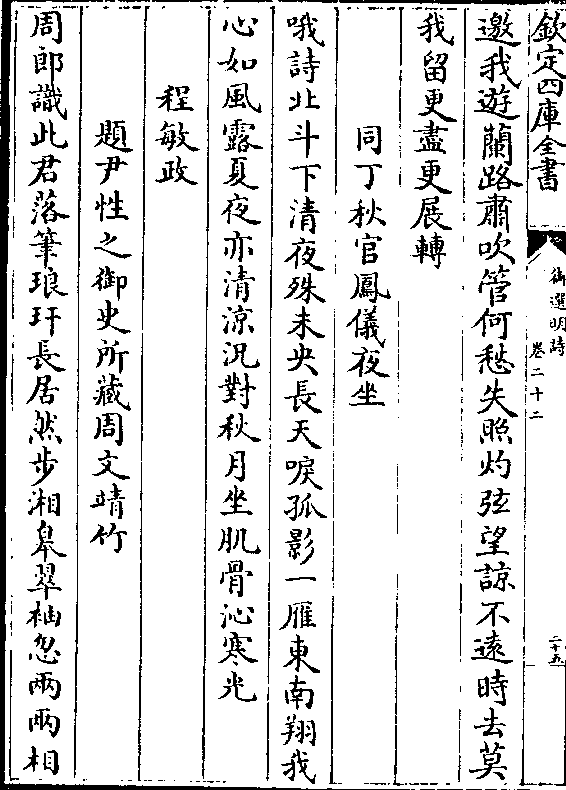 欽定四庫全書
御選明詩
卷二十二
二十五
邀我遊蘭路肅吹管何愁失照灼弦望諒不遠時去莫
我留更盡更展轉
同丁秋官鳳儀夜坐
哦詩北斗下清夜殊未央長天唳孤影一雁東南翔我
心如風露夏夜亦清涼況對秋月坐肌骨沁寒光
程敏政
題尹性之御史所藏周文靖竹
周郎識此君落筆琅玕長居然步湘皋翠袖忽兩兩相